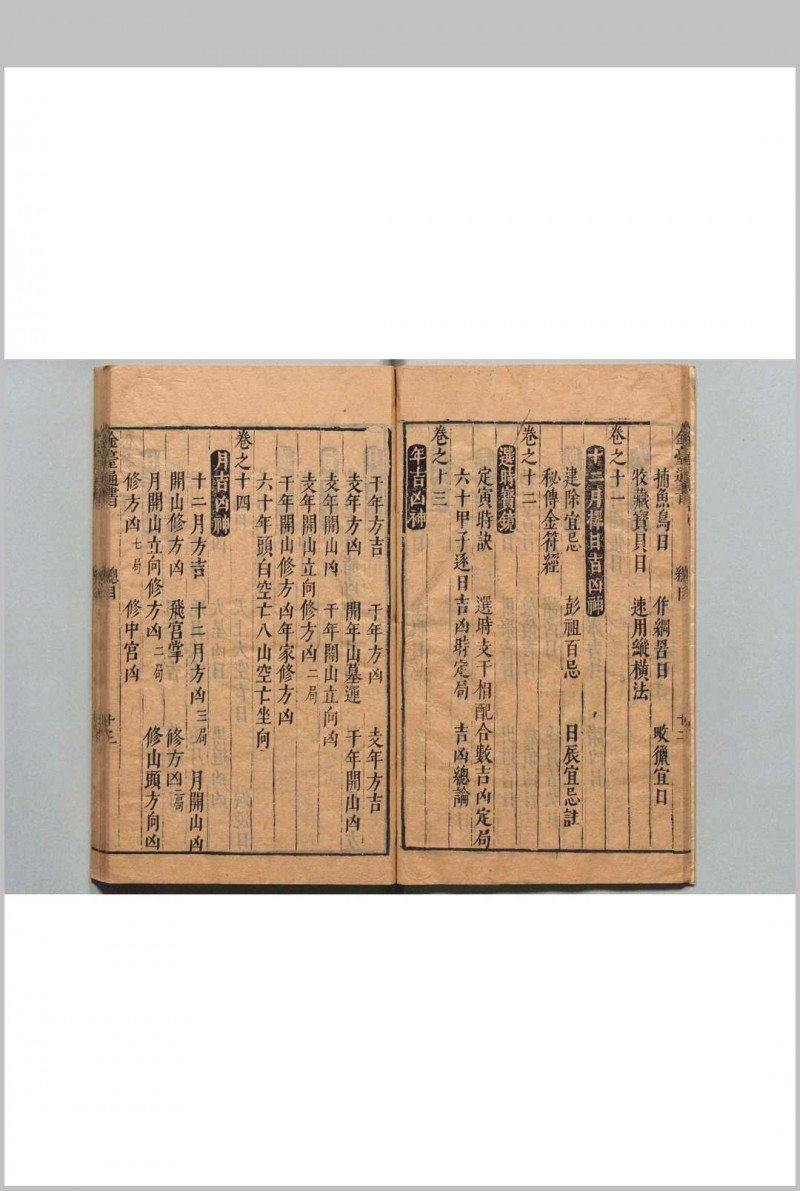 捕魚鳥日 作網罟日 畋獵宜日
牧藏寶貝日 速用縱橫法
卷之十一
十二月擇日吉凶神
建除宜忌 彭祖百忌 日辰宜忌註
秘傳金符經
卷之十二
選時寶鏡
定寅時訣 選時支干相配合數吉凶定局
六十甲子逐日吉凶時定局 吉凶總論
卷之十三
年吉凶神
干年方吉 干年方凶 支年方吉
支年方凶 開年山墓運 干年開山凶
支年開山凶 干年開山立向凶
支年開山立向修方凶二局
干年開山修方凶年家修方凶
六十年頭白空亡八山空亡坐向
卷之十四
月吉凶神
十二月方吉 十二月方凶三局 月開山凶
開山修方凶 飛宮掌 修方凶二局
月開山立向修方凶二局 修山頭方向凶
修方凶七局 修中宮凶
通書 總目 十二
金臺通書 總目 十三